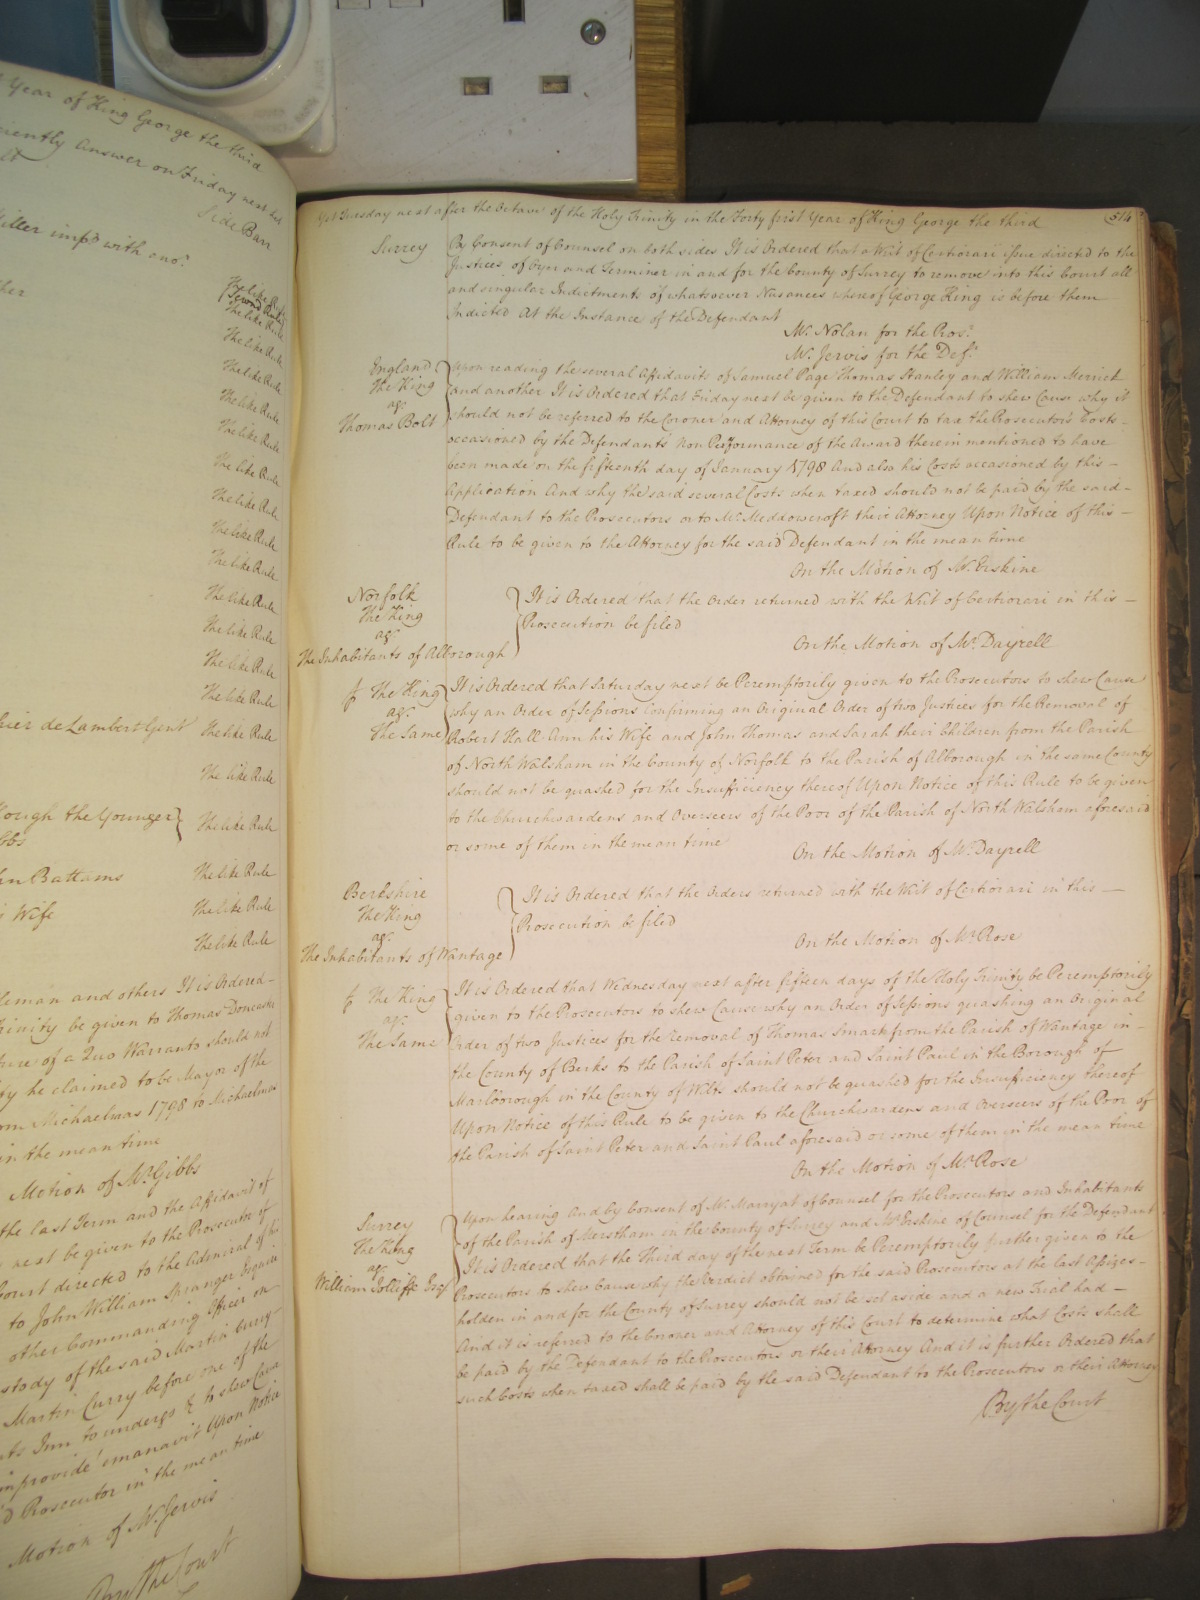 Year of King George the third
ciently Answer on Friday next
Side Barr
Miller imp.d with ano.r
The like Rule
Second Rule
The like Rule
The like Rule
The like Rule
The like Rule
The like Rule
The like Rule
The like Rule
The like Rule
The like Rule
The like Rule
The like Rule
The like Rule
The like Rule
de Lambert Gent The like Rule
The like Rule
the Younger The like Rule
Battams The like Rule
Wife The like Rule
The like Rule
and others It is Ordered
Trinity be given to Thomas Doncaster
of a Quo Warranto should not
he claimed to be Mayor of the
Michaelmas 1798 to Michaelmas
in the mean time
Motion of Mr. Gibbs
the last Term and the Affidavit of
next be given to the Prosecutor if
Court directed to the Admiral of his
to John William Spranger Esquire
other Commanding Officer on
custody of the said Martin Curry
Martin Curry before one of the
Inn to undergo &c to shew Cause
improvide emanavit Upon Notice
Prosecutor in the mean time
Motion of Mr. Jervis
By the Court
Yet Tuesday next after the Octave of the Holy Trinity in the Forty first Year of King George the third
514
Surrey By Consent of Counsel on both sides It is Ordered that a Writ of Certiorari issue directed to the
Justices of Oyer and Terminer in and for the County of Surrey to remove into this Court all
and singular Indictments of whatsoever Nusances whereof George King is before them
Indicted At the Instance of the Defendant
Mr. Nolan for the Pros.r
Mr. Jervis for the Def.t
England
The King
agt.
Thomas Bolt
Upon reading the several Affidavits of Samuel Page Thomas Stanley and William Merrick
and another It is Ordered that Friday next be given to the Defendant to shew Cause why it
should not be referred to the Coroner and Attorney of this Court to tax the Prosecutors Costs
occasioned by the Defendants Non Performance of the Award therein mentioned to have
been made on the fifteenth day of January 1798 And also his Costs occasioned by this
Application And why the said several Costs when taxed should not be paid by the said
Defendant to the Prosecutors or to Mr. Meddowcroft their Attorney Upon Notice of this
Rule to be given to the Attorney for the said Defendant in the mean time
On the Motion of Mr. Erskine
Norfolk
The King
agt.
The Inhabitants of Alborough
It is Ordered that the Order returned with the Writ of Certiorari in this
Prosecution be filed
On the Motion of Mr. Dayrell
The King
agt.
The Same
It is Ordered that Saturday next be Peremptorily given to the Prosecutors to shew Cause
why an Order of Sessions Confirming an Original Order of two Justices for the Removal of
Robert Hall Ann his Wife and John Thomas and Sarah their Children from the Parish
of North Walsham in the County of Norfolk to the Parish of Alborough in the same County
should not be quashed for the Insufficiency thereof Upon Notice of this Rule to be given
to the Churchwardens and Overseers of the Poor of the Parish of North Walsham aforesaid
or some of them in the mean time
On the Motion of Mr. Dayrell
Berkshire
The King
agt.
The Inhabitants of Wantage
It is Ordered that the Orders returned with the Writ of Certiorari in this
Prosecution be filed
On the Motion of Mr. Rose
The King
agt.
The Same
It is Ordered that Wednesday next after fifteen days of the Holy Trinity be Peremptorily
given to the Prosecutors to shew Cause why an Order of Sessions quashing an Original
Order of two Justices for the Removal of Thomas Smark from the Parish of Wantage in
the County of Berks to the Parish of Saint Peter and Saint Paul in the Borough of
Marlborough in the County of Wilts should not be quashed for the Insufficiency thereof
Upon Notice of this Rule to be given to the Churchwardens and Overseers of the Poor of
the Parish of Saint Peter and Saint Paul aforesaid or some of them in the mean time
On the Motion of Mr. Rose
Surrey
The King
agt.
William Jolliffe Esq.
Upon hearing And by Consent of Mr. Marryat of Counsel for the Prosecutors and Inhabitants
of the Parish of Merstham in the County of Surrey and Mr. Erskine of Counsel for the Defendant
It is Ordered that the Third day of the next Term be Peremptorily further given to the
Prosecutors to shew Cause why the Verdict obtained for the said Prosecutors at the last Assizes
holden in and for the County of Surrey should not be set aside and a new Trial had
And it is referred to the Coroner and Attorney of this Court to determine what Costs shall
be paid by the Defendant to the Prosecutors or their Attorney And it is further Ordered that
such Costs when taxed shall be paid by the said Defendant to the Prosecutors or their Attorney
By the Court